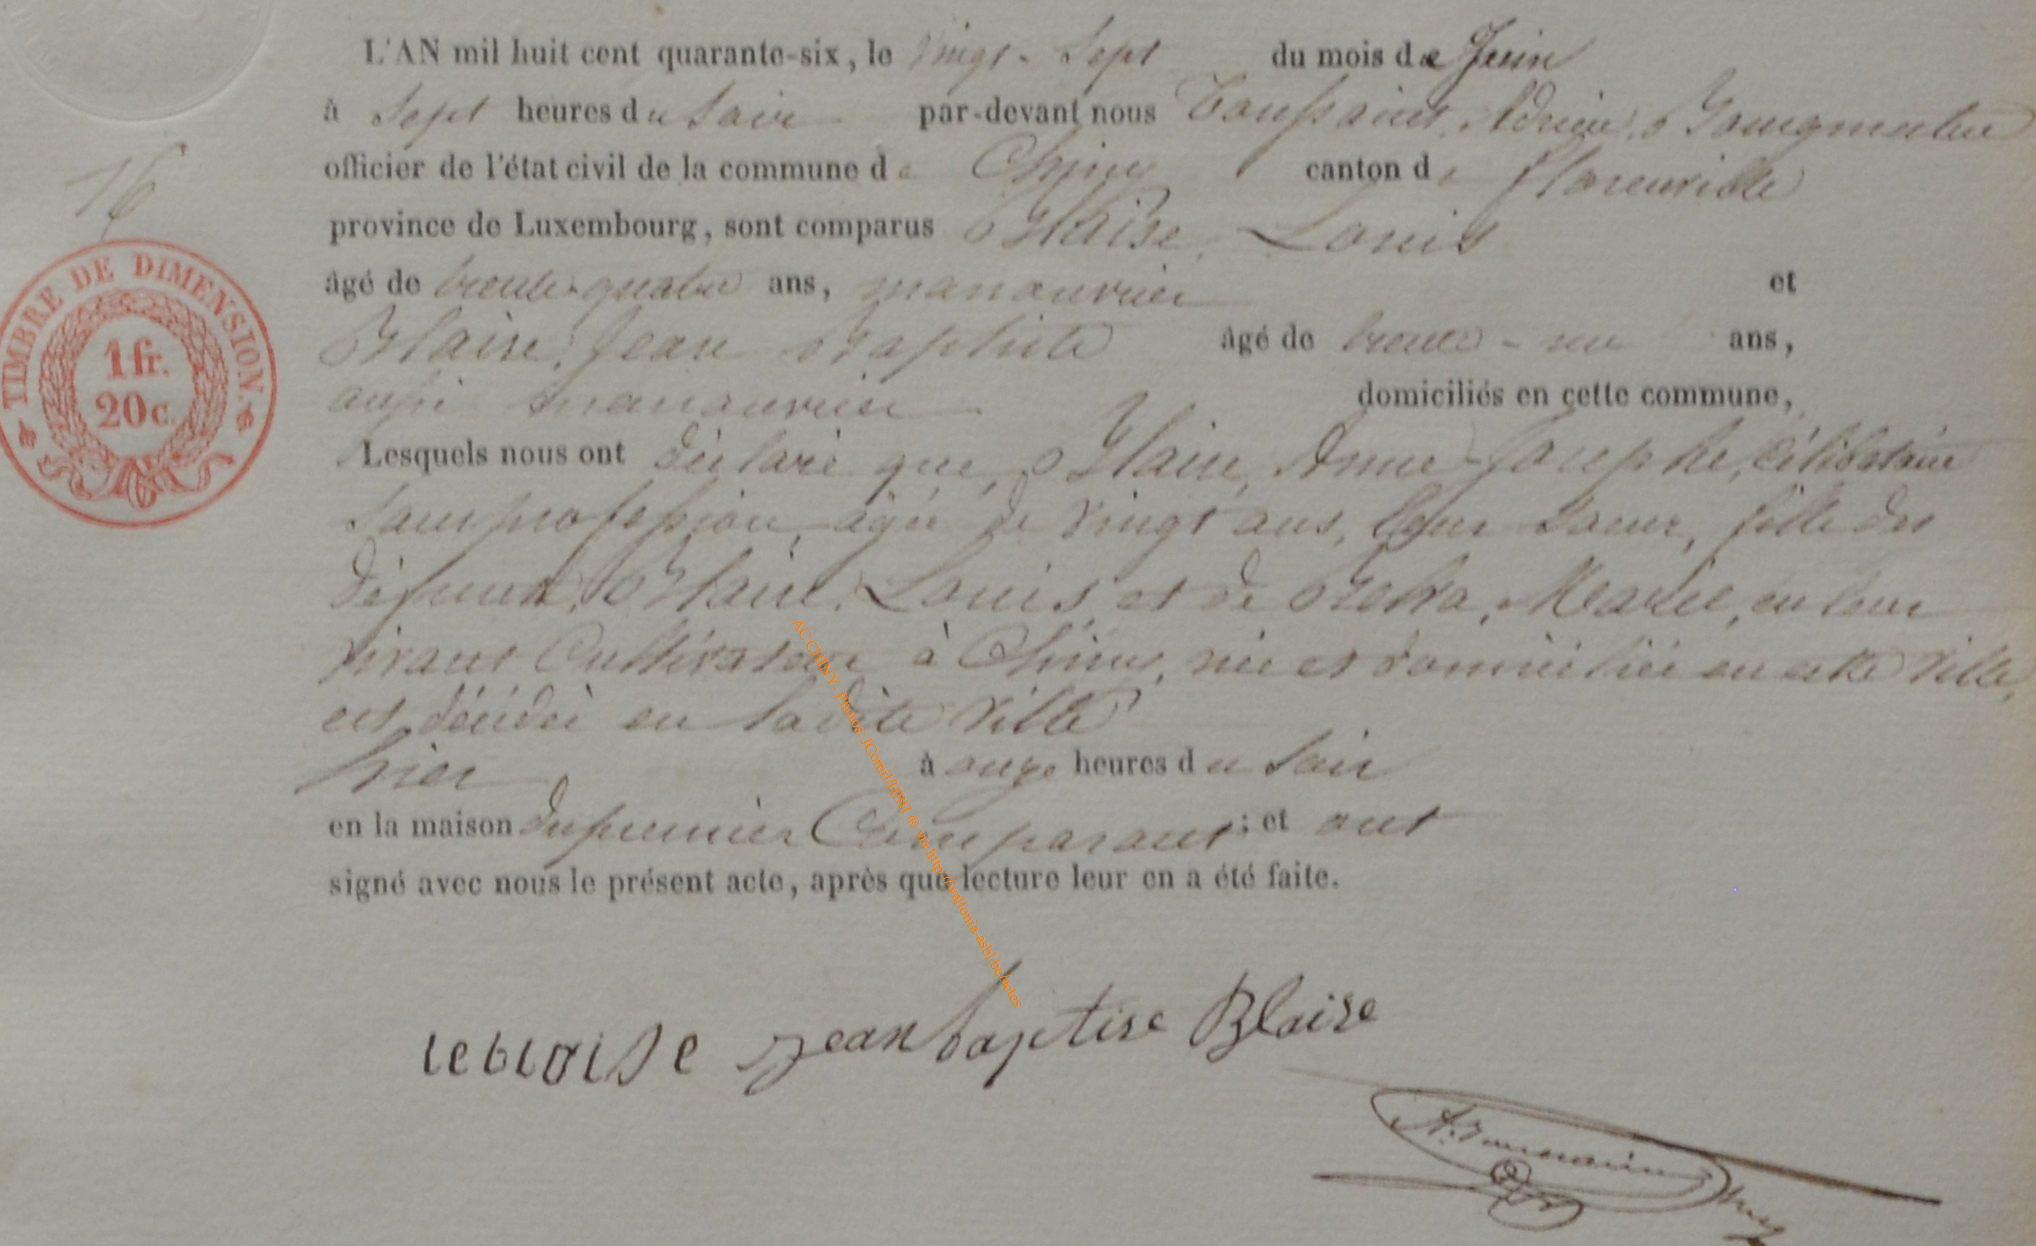 L'AN mil huit cent quarante-six, le Vingt-Sept du mois de Juin
à Sept heures du Soir par-devant nous Toussaint, Adrien,
officier de l'état civil de la commune de Chiny canton de florenville
province de Luxembourg, sont comparus Blaise, Louis
âgé de trente-quatre ans, manouvrier et
Blaise, Jean Baptiste âgé de trente-un ans,
aussi manouvrier domiciliés en cette commune,
Lesquels nous ont déclaré que, Blaise, Anne-Josephe, Célibataire
Sans profession, agée de Vingt ans, leur Soeur, fille des
défunts, Blaise, Louis, et de Marie, en leur
vivant Cultivateurs à Chiny, née et domiciliée en cette Ville,
est décédée en ladite Ville
hier à onze heures du Soir
en la maison du premier Comparant; et ont
signé avec nous le présent acte, après que lecture leur en a été faite.
16
TIMBRE DE DIMENSION.
1 fr.
20 c.
leblaise jean baptise Blaise